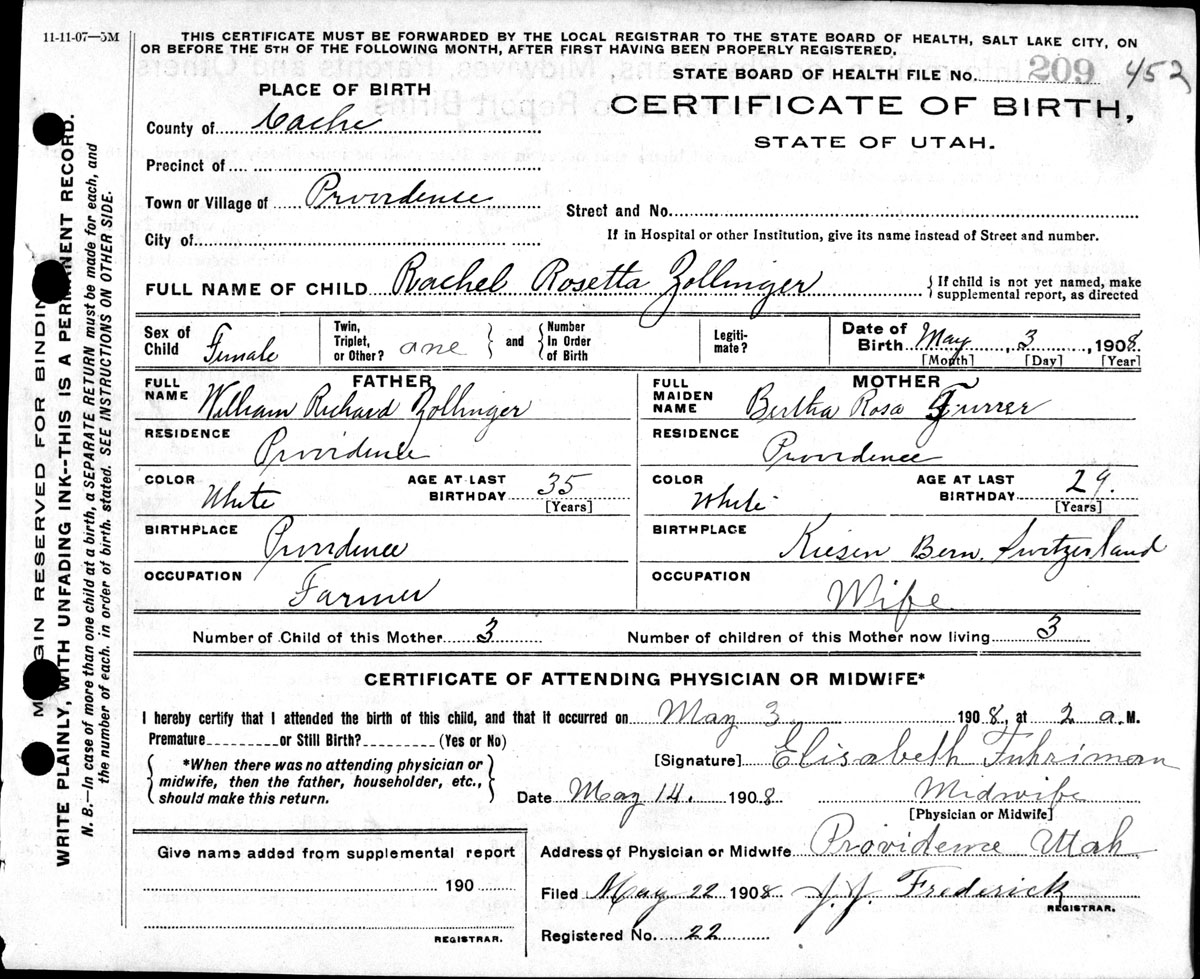 11-11-07—5M
THIS CERTIFICATE MUST BE FORWARDED BY THE LOCAL REGISTRAR TO THE STATE BOARD OF HEALTH, SALT LAKE CITY, ON
OR BEFORE THE 5TH OF THE FOLLOWING MONTH, AFTER FIRST HAVING BEEN PROPERLY REGISTERED.
STATE BOARD OF HEALTH FILE No. 209 452
PLACE OF BIRTH
CERTIFICATE OF BIRTH,
STATE OF UTAH.
County of Cache
Precinct of
Town or Village of Providence
Street and No.
City of
If in Hospital or other Institution, give its name instead of Street and number.
FULL NAME OF CHILD Rachel Rosetta Zollinger
{ If child is not yet named, make
supplemental report, as directed
Sex of Child Female
Twin, Triplet, or Other? one } and { Number In Order of Birth
Legiti-mate?
Date of Birth May, 3, 1908.
[Month] [Day] [Year]
FATHER
FULL NAME William Richard Zollinger
MOTHER
FULL MAIDEN NAME Bertha Rosa Furrer
RESIDENCE Providence
RESIDENCE Providence
COLOR White
AGE AT LAST BIRTHDAY 35
[Years]
COLOR White
AGE AT LAST BIRTHDAY 29.
[Years]
BIRTHPLACE Providence
BIRTHPLACE Kiesen Bern, Switzerland
OCCUPATION Farmer
OCCUPATION Wife
Number of Child of this Mother 3
Number of children of this Mother now living 3
CERTIFICATE OF ATTENDING PHYSICIAN OR MIDWIFE*
I hereby certify that I attended the birth of this child, and that it occurred on May 3 1908, at 2 a.M.
Premature or Still Birth? (Yes or No)
{ *When there was no attending physician or
midwife, then the father, householder, etc.,
should make this return. }
[Signature] Elisabeth Fuhriman
Date May 14. 1908
Midwife
[Physician or Midwife]
Give name added from supplemental report
190
REGISTRAR.
Address of Physician or Midwife Providence Utah
Filed May 22 1908 J. J. Frederick
REGISTRAR.
Registered No. 22
MARGIN RESERVED FOR BINDING
WRITE PLAINLY, WITH UNFADING INK--THIS IS A PERMANENT RECORD.
N. B.—In case of more than one child at a birth, a SEPARATE RETURN must be made for each, and
the number of each, in order of birth, stated. SEE INSTRUCTIONS ON OTHER SIDE.